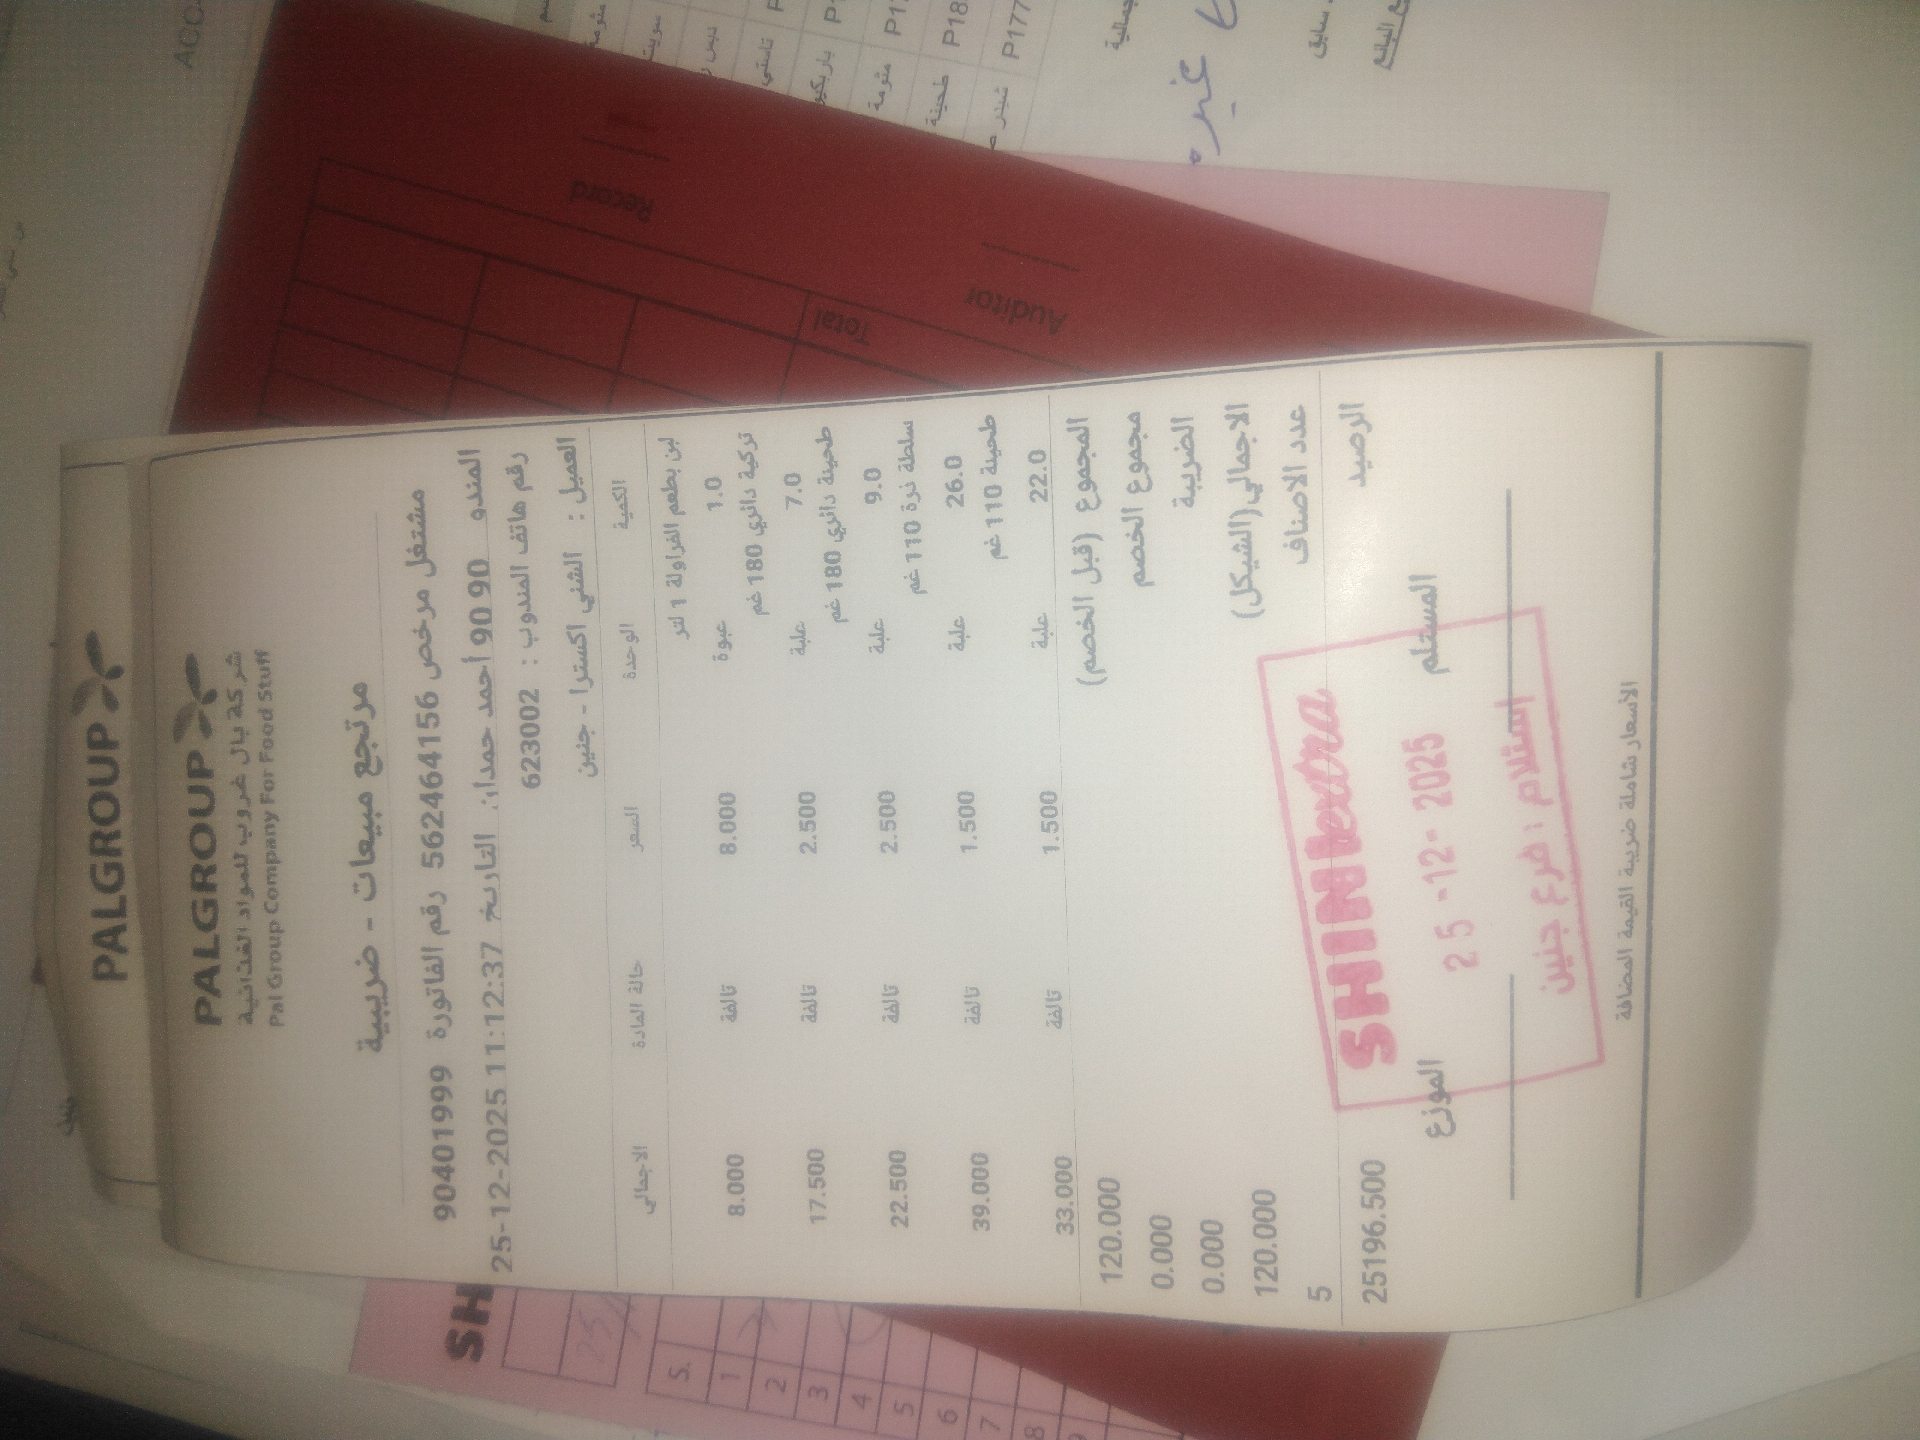 PALGROUP
PALGROUP
شركة بال غروب للمواد الغذائية
Pal Group Company For Food Stuff
مرتجع مبيعات - ضريبية
مشتغل مرخص 562464156 رقم الفاتورة 90401999
المندو 90 90 أحمد حمدان: التاريخ 11:12:37 25-12-2025
رقم هاتف المندوب : 623002
العميل : الشني اكسترا - جنين
الكمية الوحدة السعر حالة المادة الاجمالي
لبن بطعم الفراولة 1 لتر
1.0 عبوة 8.000 تالفة 8.000
تركية دائري 180 غم
7.0 علبة 2.500 تالفة 17.500
طحينة دائري 180 غم
9.0 علبة 2.500 تالفة 22.500
سلطة ذرة 110 غم
26.0 علبة 1.500 تالفة 39.000
طحينة 110 غم
22.0 علبة 1.500 تالفة 33.000
المجموع (قبل الخصم) 120.000
مجموع الخصم 0.000
الضريبة 0.000
الاجمالي(الشيكل) 120.000
عدد الاصناف 5
الرصيد 25196.500
المستلم الموزع
SHINI extra
25 -12- 2025
إستلام : فرع جنين
الأسعار شاملة ضريبة القيمة المضافة
Record
Auditor
Total
SH
S.
1
2
3
4
5
6
7
8
P18
P177
مثومة
طحينة
سابق
غيره